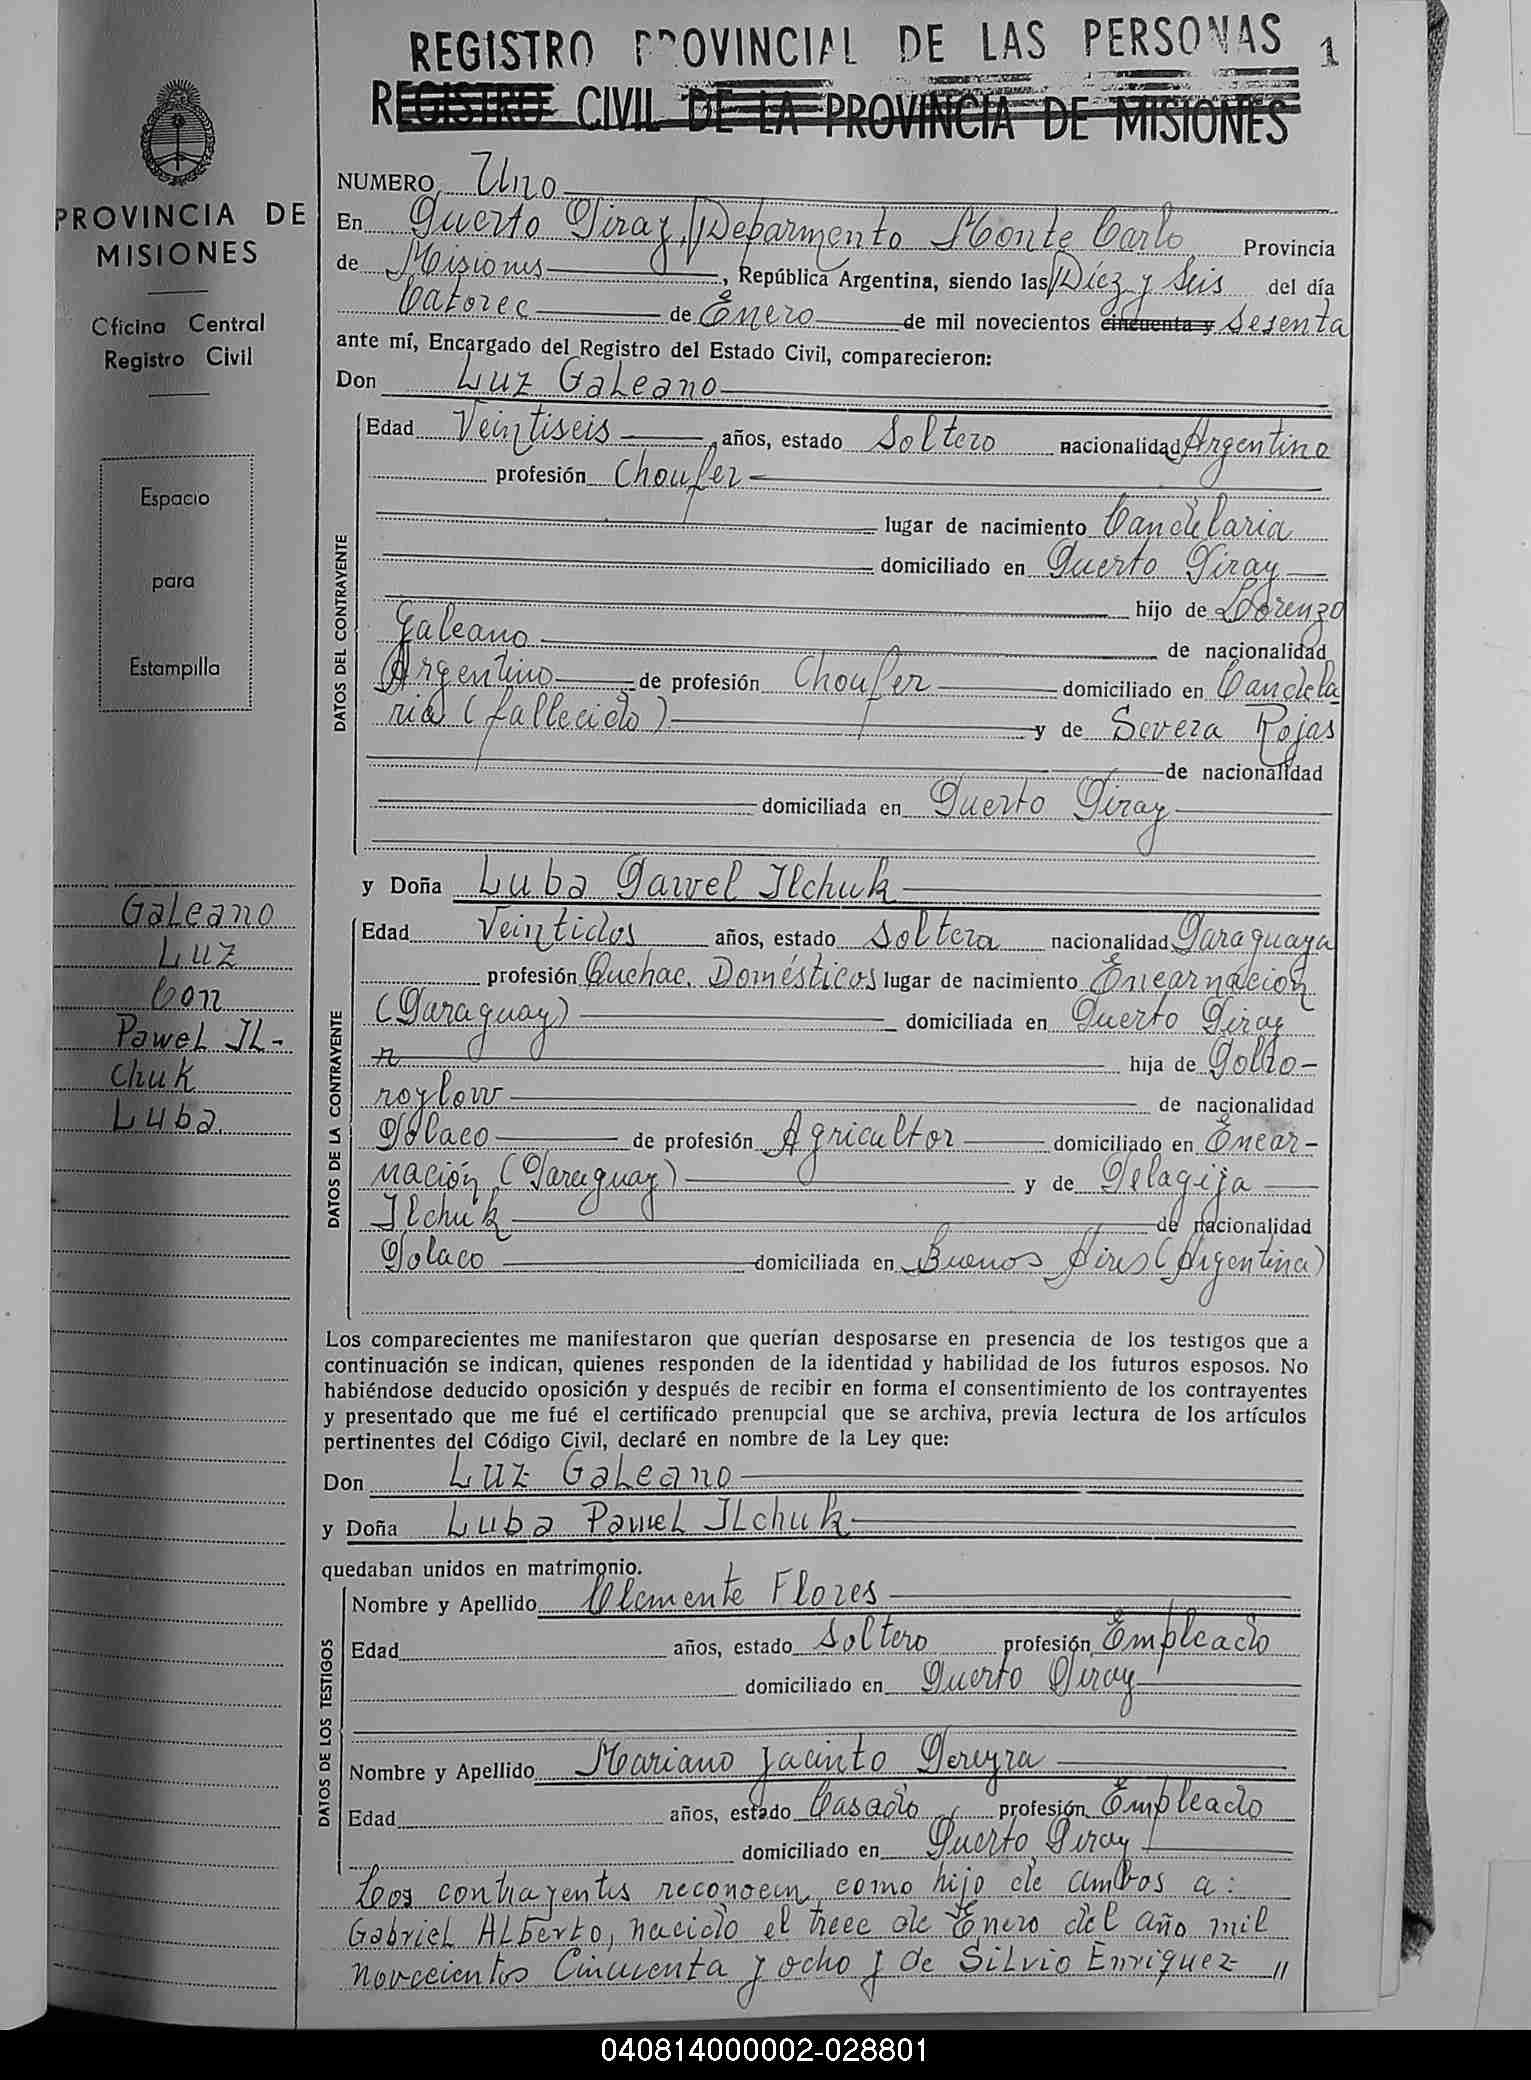 REGISTRO PROVINCIAL DE LAS PERSONAS 1
REGISTRO CIVIL DE LA PROVINCIA DE MISIONES
PROVINCIA DE
MISIONES
Oficina Central
Registro Civil
Espacio
para
Estampilla
Galeano
Luz
Con
Pawel IL-
chuk
Luba
NUMERO Uno
En Puerto Piray, Deparmento Monte Carlo Provincia
de Misiones, República Argentina, siendo las Diez y Seis del día
Catorce de Enero de mil novecientos cincuenta y Sesenta
ante mí, Encargado del Registro del Estado Civil, comparecieron:
Don Luz Galeano
DATOS DEL CONTRAYENTE
Edad Veintiseis años, estado Soltero nacionalidad Argentino
profesión Choufer
lugar de nacimiento Candelaria
domiciliado en Puerto Piray
hijo de Lorenzo
Galeano de nacionalidad
Argentino de profesión Choufer domiciliado en Candela
ria (fallecido) y de Severa Rojas
de nacionalidad
domiciliada en Puerto Piray
y Doña Luba Pawel Ilchuk
DATOS DE LA CONTRAYENTE
Edad Veintidos años, estado Soltera nacionalidad Paraguaya
profesión Quehac. Domésticos lugar de nacimiento Encarnación
(Paraguay) domiciliada en Puerto Piray
hija de
de nacionalidad
Polaco de profesión Agricultor domiciliado en Encar-
nación (Paraguay) y de Pelagija
Ilchuk de nacionalidad
Polaco domiciliada en Buenos Aires (Argentina)
Los comparecientes me manifestaron que querían desposarse en presencia de los testigos que a
continuación se indican, quienes responden de la identidad y habilidad de los futuros esposos. No
habiéndose deducido oposición y después de recibir en forma el consentimiento de los contrayentes
y presentado que me fué el certificado prenupcial que se archiva, previa lectura de los artículos
pertinentes del Código Civil, declaré en nombre de la Ley que:
Don Luz Galeano
y Doña Luba Pawel Ilchuk
quedaban unidos en matrimonio.
DATOS DE LOS TESTIGOS
Nombre y Apellido Clemente Flores
Edad años, estado Soltero profesión Empleado
domiciliado en Puerto Piray
Nombre y Apellido Mariano Jacinto Pereyra
Edad años, estado Casado profesión Empleado
domiciliado en Puerto Piray
Los contrayentes reconocen como hijo de ambos a:
Gabriel Alberto, nacido el trece de Enero del año mil
novecientos Cincuenta y ocho y de Silvio Enriquez //
040814000002-028801